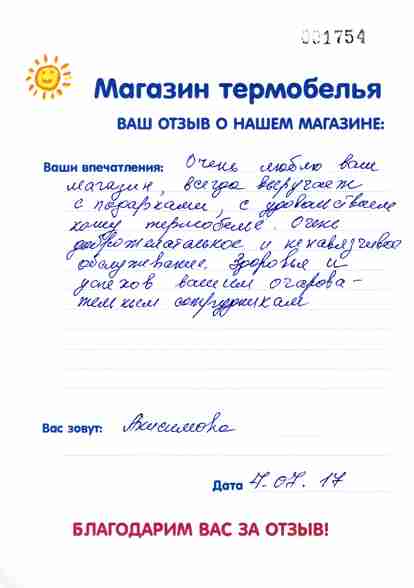 001754
Магазин термобелья
ВАШ ОТЗЫВ О НАШЕМ МАГАЗИНЕ:
Ваши впечатления: Очень люблю ваш
магазин, всегда выручает
с подарками, с удовольствием
ношу термобелье. Очень
доброжелательное и ненавязчивое
обслуживание. Здоровья и
успехов вашим очарова-
тельным сотрудникам
Вас зовут: Анисимова
Дата 4.07.17
БЛАГОДАРИМ ВАС ЗА ОТЗЫВ!